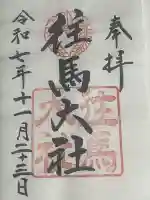 奉拝
往馬大社
令和七年十一月二十三日
往馬
大社